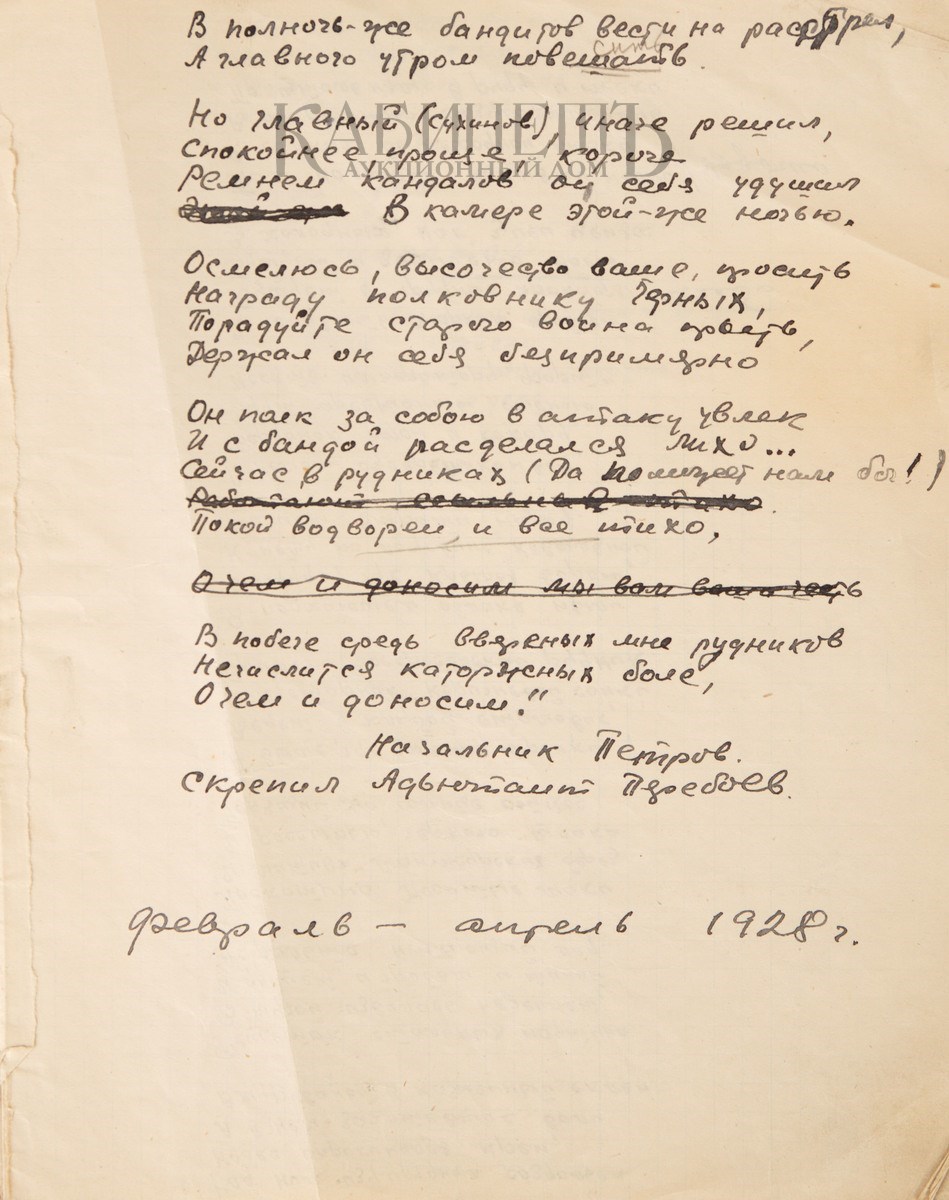 В полночь-же бандитов вести на расстрел,
А главного утром повешать.
сить
КАБИНЕТЪ
АУКЦИОННЫЙ ДОМ
Но главный (Сухинов) иначе решил,
Спокойнее, проще, короче
Ремнем кандалов он себя удушил
В камере этой-же ночью.
Осмелюсь, высочество ваше, просить
Награду полковнику Черных,
Порадуйте старого воина прыть,
Держал он себя безпримярно
Он полк за собою в аттаку увлек
И с бандой расделался лихо...
Сейчас в рудниках (Да поможет нам бог!)
Работают ссыльные тихо.
Покой водворен, и все тихо,
О чем и доносим мы вам ваша честь
В побеге средь ввереных мне рудников
Нечислится каторжных боле,
О чем и доносим."
Начальник Петров.
Скрепил Адъютант Перебоев.
Февраль - апрель 1928 г.